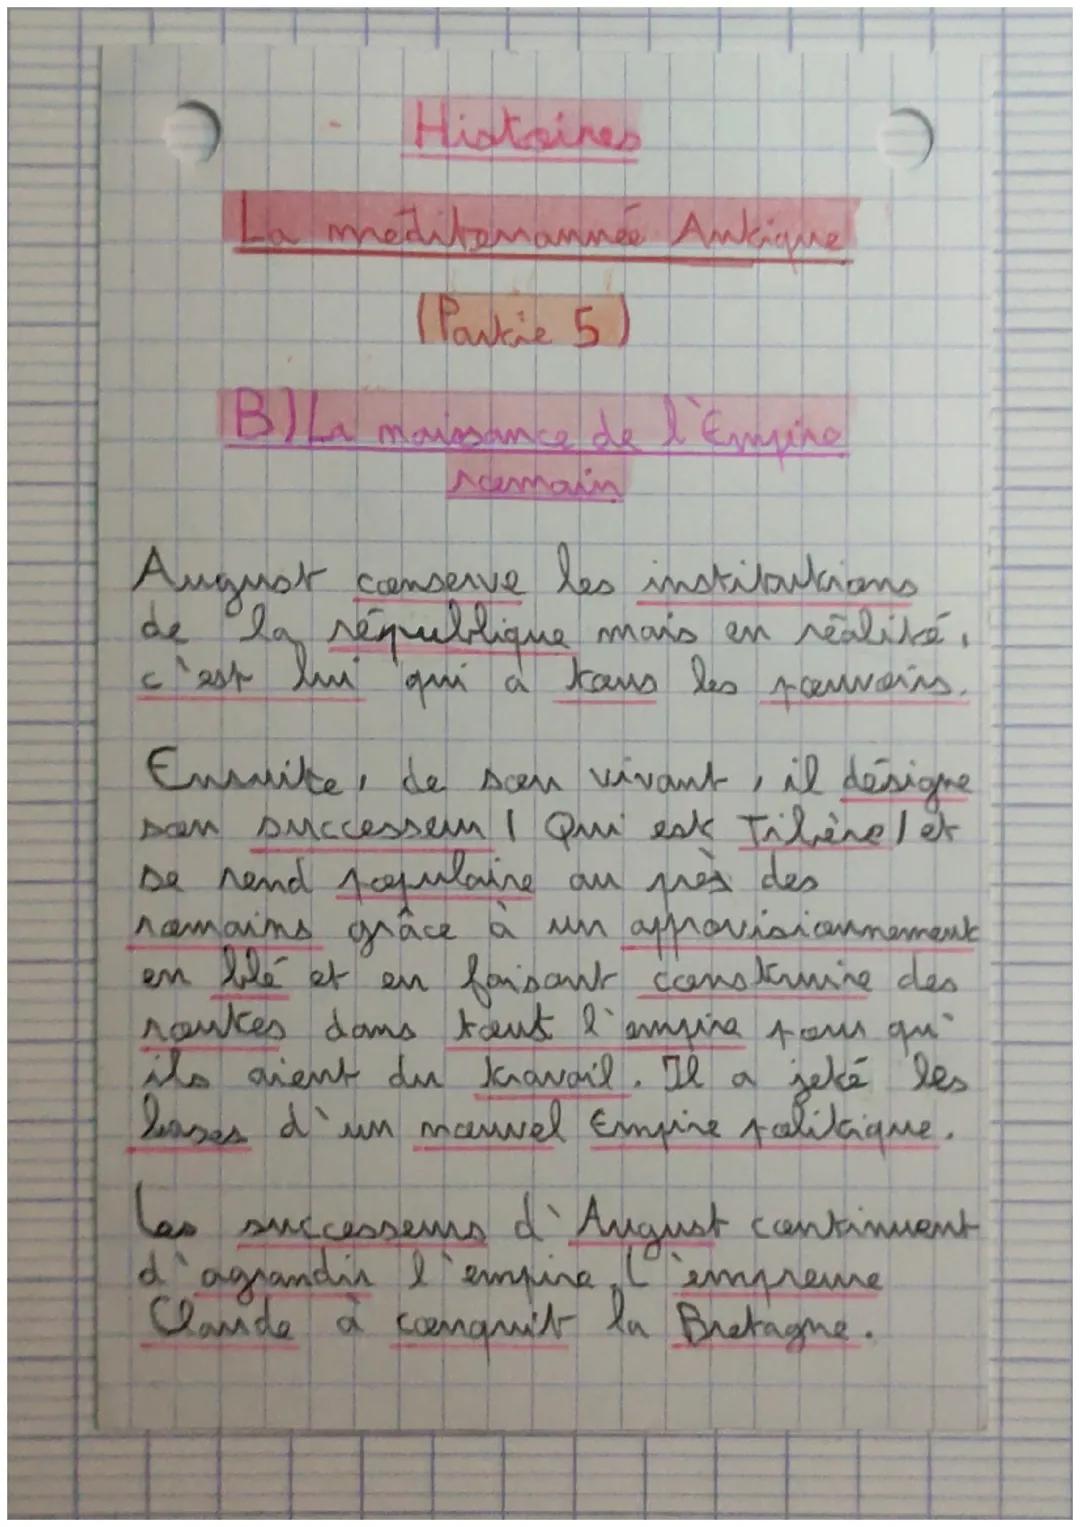 Histoires
La méditerrannée Antique
(Partie 5)
B) La naissance de l'Empire
romain
August conserve les institutions
de la république mais en réalité,
c'est lui qui a tous les pouvoirs.
Ensuite, de son vivant, il désigne
son successeur ( Qui est Tibère ) et
se rend populaire au près des
romains grâce à un approvisionnement
en blé et en faisant construire des
routes dans tout l'empire pour qu'
ils aient du travail. Il a jeté les
bases d'un nouvel Empire politique.
Les successeurs d'August continuent
d'agrandir l'empire. L'empreure
Claude à conquit la Bretagne.